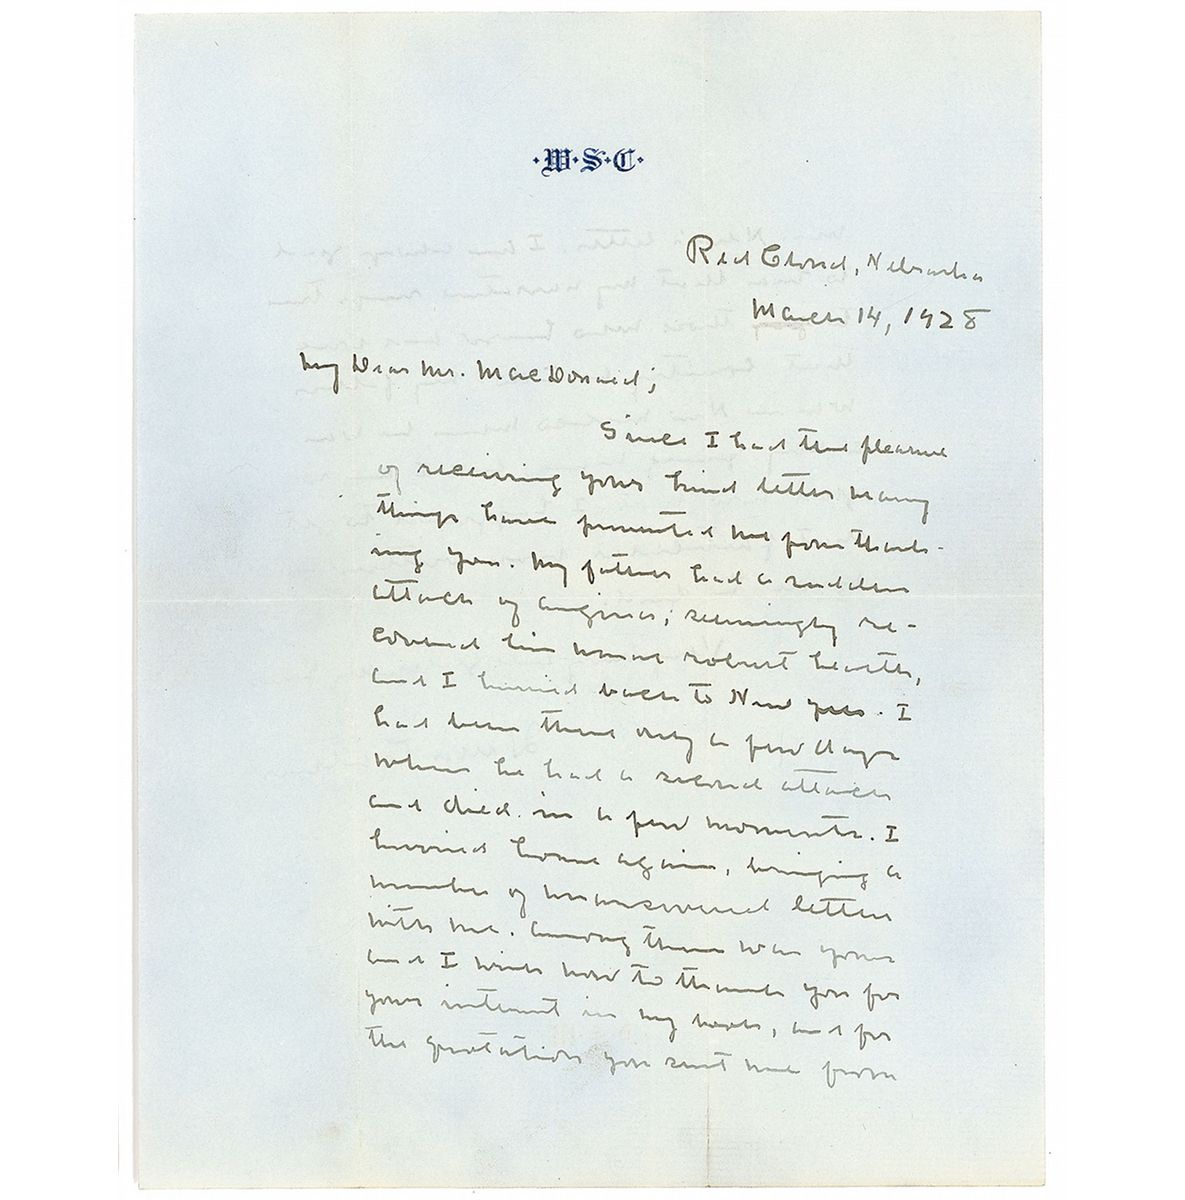 ·W·S·C·
Red Cloud, Nebraska
March 14, 1928
My Dear Mr. MacDonald;
Since I had the pleasure
of receiving your kind letter many
things have prevented me from thank-
ing you. My father had a sudden
attack of angina; seemingly re-
covered his usual robust health,
and I hurried back to New York. I
had been there only a few days
when he had a second attack
and died in a few moments. I
hurried home again, bringing a
number of unanswered letters
with me. Among them was yours
and I wish now to thank you for
your interest in my work, and for
the quotation you sent me from